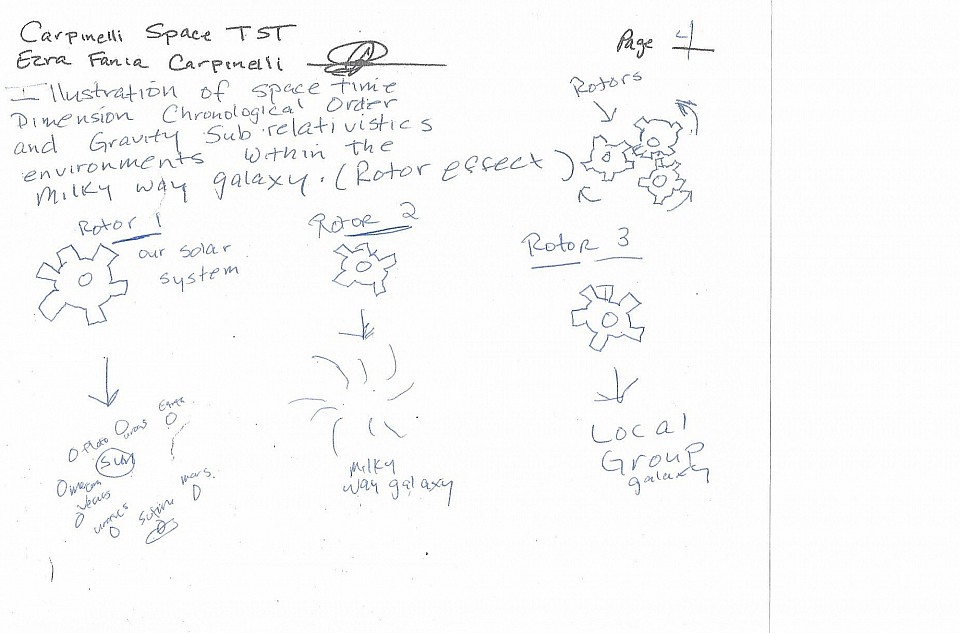 Carpinelli Space TST
Ezra Fania Carpinelli
Page 4
Illustration of space time
Dimension Chronological Order
and Gravity Sub relativistics
environments within the
Milky way galaxy. (Rotor effect)
Rotors
Rotor 1
our solar
system
Rotor 2
Rotor 3
Sun
Pluto
Venus
Mars
Milky
way galaxy
Local
Group
galaxy